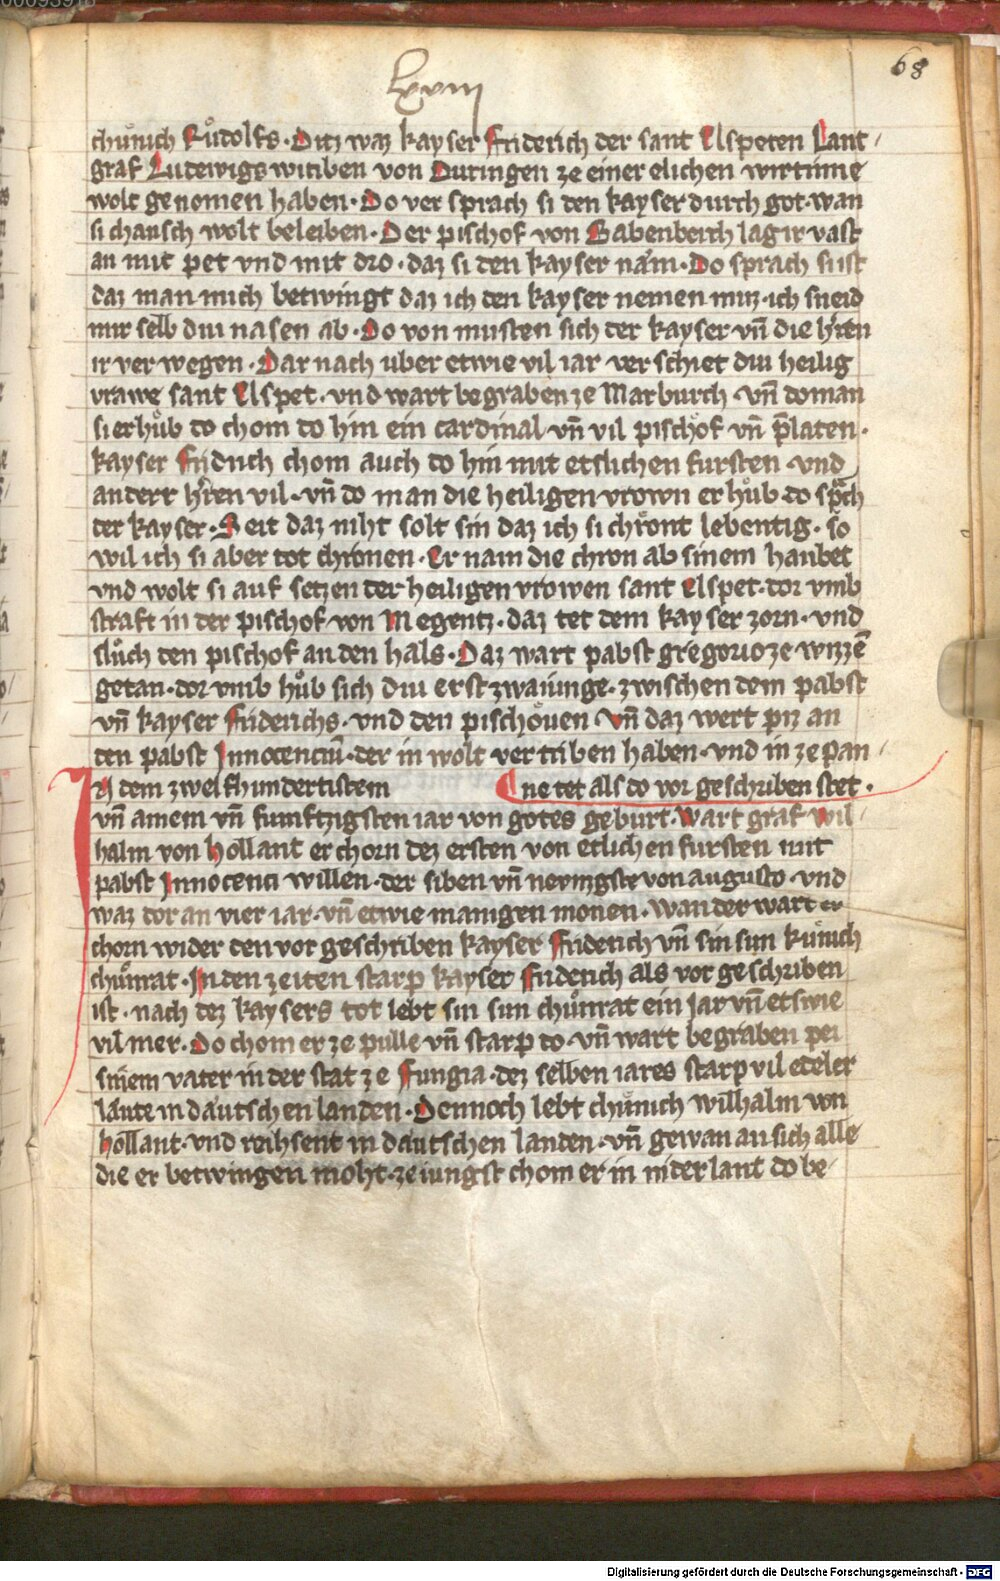 lxviij
68
chuͦnich Ruͦdolfs · Ditz waz kayser Friderich der sant Elspeten Lant/
graf Ludewigs witiben von Duringen ze einer elichen wirtinne
wolt genomen haben · Do ver sprach si den kayser durch got · wan
si chausch wolt beleiben · Der pischof von Babenberch lag ir vast
an mit pet vnd mit dro · daz si den kayser nam · Do sprach si ist
daz man mich betwingt daz ich den kayser nemen muz · ich sneid
mir selb diu nasen ab · Do von musten sich der kayser vn̄ die h'ren
ir ver wegen · Dar nach uber etwie vil iar ver schiet diu heilig
vrawe sant Elspet · vnd wart begraben ze Marburch · vn̄ do man
si erhuͦb do chom do hin ein cardinal vn̄ vil pischof vn̄ p̄laten ·
kayser Fridrich chom auch do hin mit etslichen fursten · vnd
anderr h'ren vil · vn̄ do man die heiligen vrown er huͦb do sp̄ch
der kayser · Seit daz niht solt sin daz ich si chroͤnt lebentig · so
wil ich si aber tot chronen · Er nam die chron ab sinem haubet
vnd wolt si auf setzen der heiligen vrowen sant Elspet · dor vmb
straft in der pischof von Megentz · daz tet dem kayser zorn · vnd
sluͦch den pischof an den hals · Daz wart pabst gregorio ze wizzē
getan · dor vmb huͦb sich diu erst zwaiunge · zwischen dem pabst
vn̄ kayser Friderichs · vnd den pischoͤuen vn̄ daz wert piz an
den pabst Innocenciū · der in wolt vertriben haben · vnd in ze pan/
ne tet als do vor geschriben stet ·
In dem zwelfhundertistem
vn̄ ainem vn̄ funftzigsten iar von gotes geburt · wart graf wil/
halm von hollant er chorn dez ersten von etlichen fursten mit
pabst Innocenci willen · der siben vn̄ neyngste von augusto · vnd
waz dor an vier iar · vn̄ etwie manigen monen · wan der wart er
chorn wider den vor geschriben kayser Friderich vn̄ sin sun kuͤnich
chuͦnrat · In den zeiten starp kayser Friderich als vor geschriben
ist · nach dez kaysers tot lebt sin sun chuͦnrat ein jar vn̄ etswie
vil mer · Do chom er ze pulle vn̄ starp do · vn̄ wart begraben pei
sinem vater in der stat ze Fungia · dez selben iares starp vil edeler
laute in dautschen landen · Dennoch lebt chuͤnich wilhalm von
hollant · vnd reihsent in dautschen landen · vn̄ gewan an sich alle
die er betwingen moht · ze iungst chom er in nider lant do be/
Digitalisierung gefördert durch die Deutsche Forschungsgemeinschaft - DFG